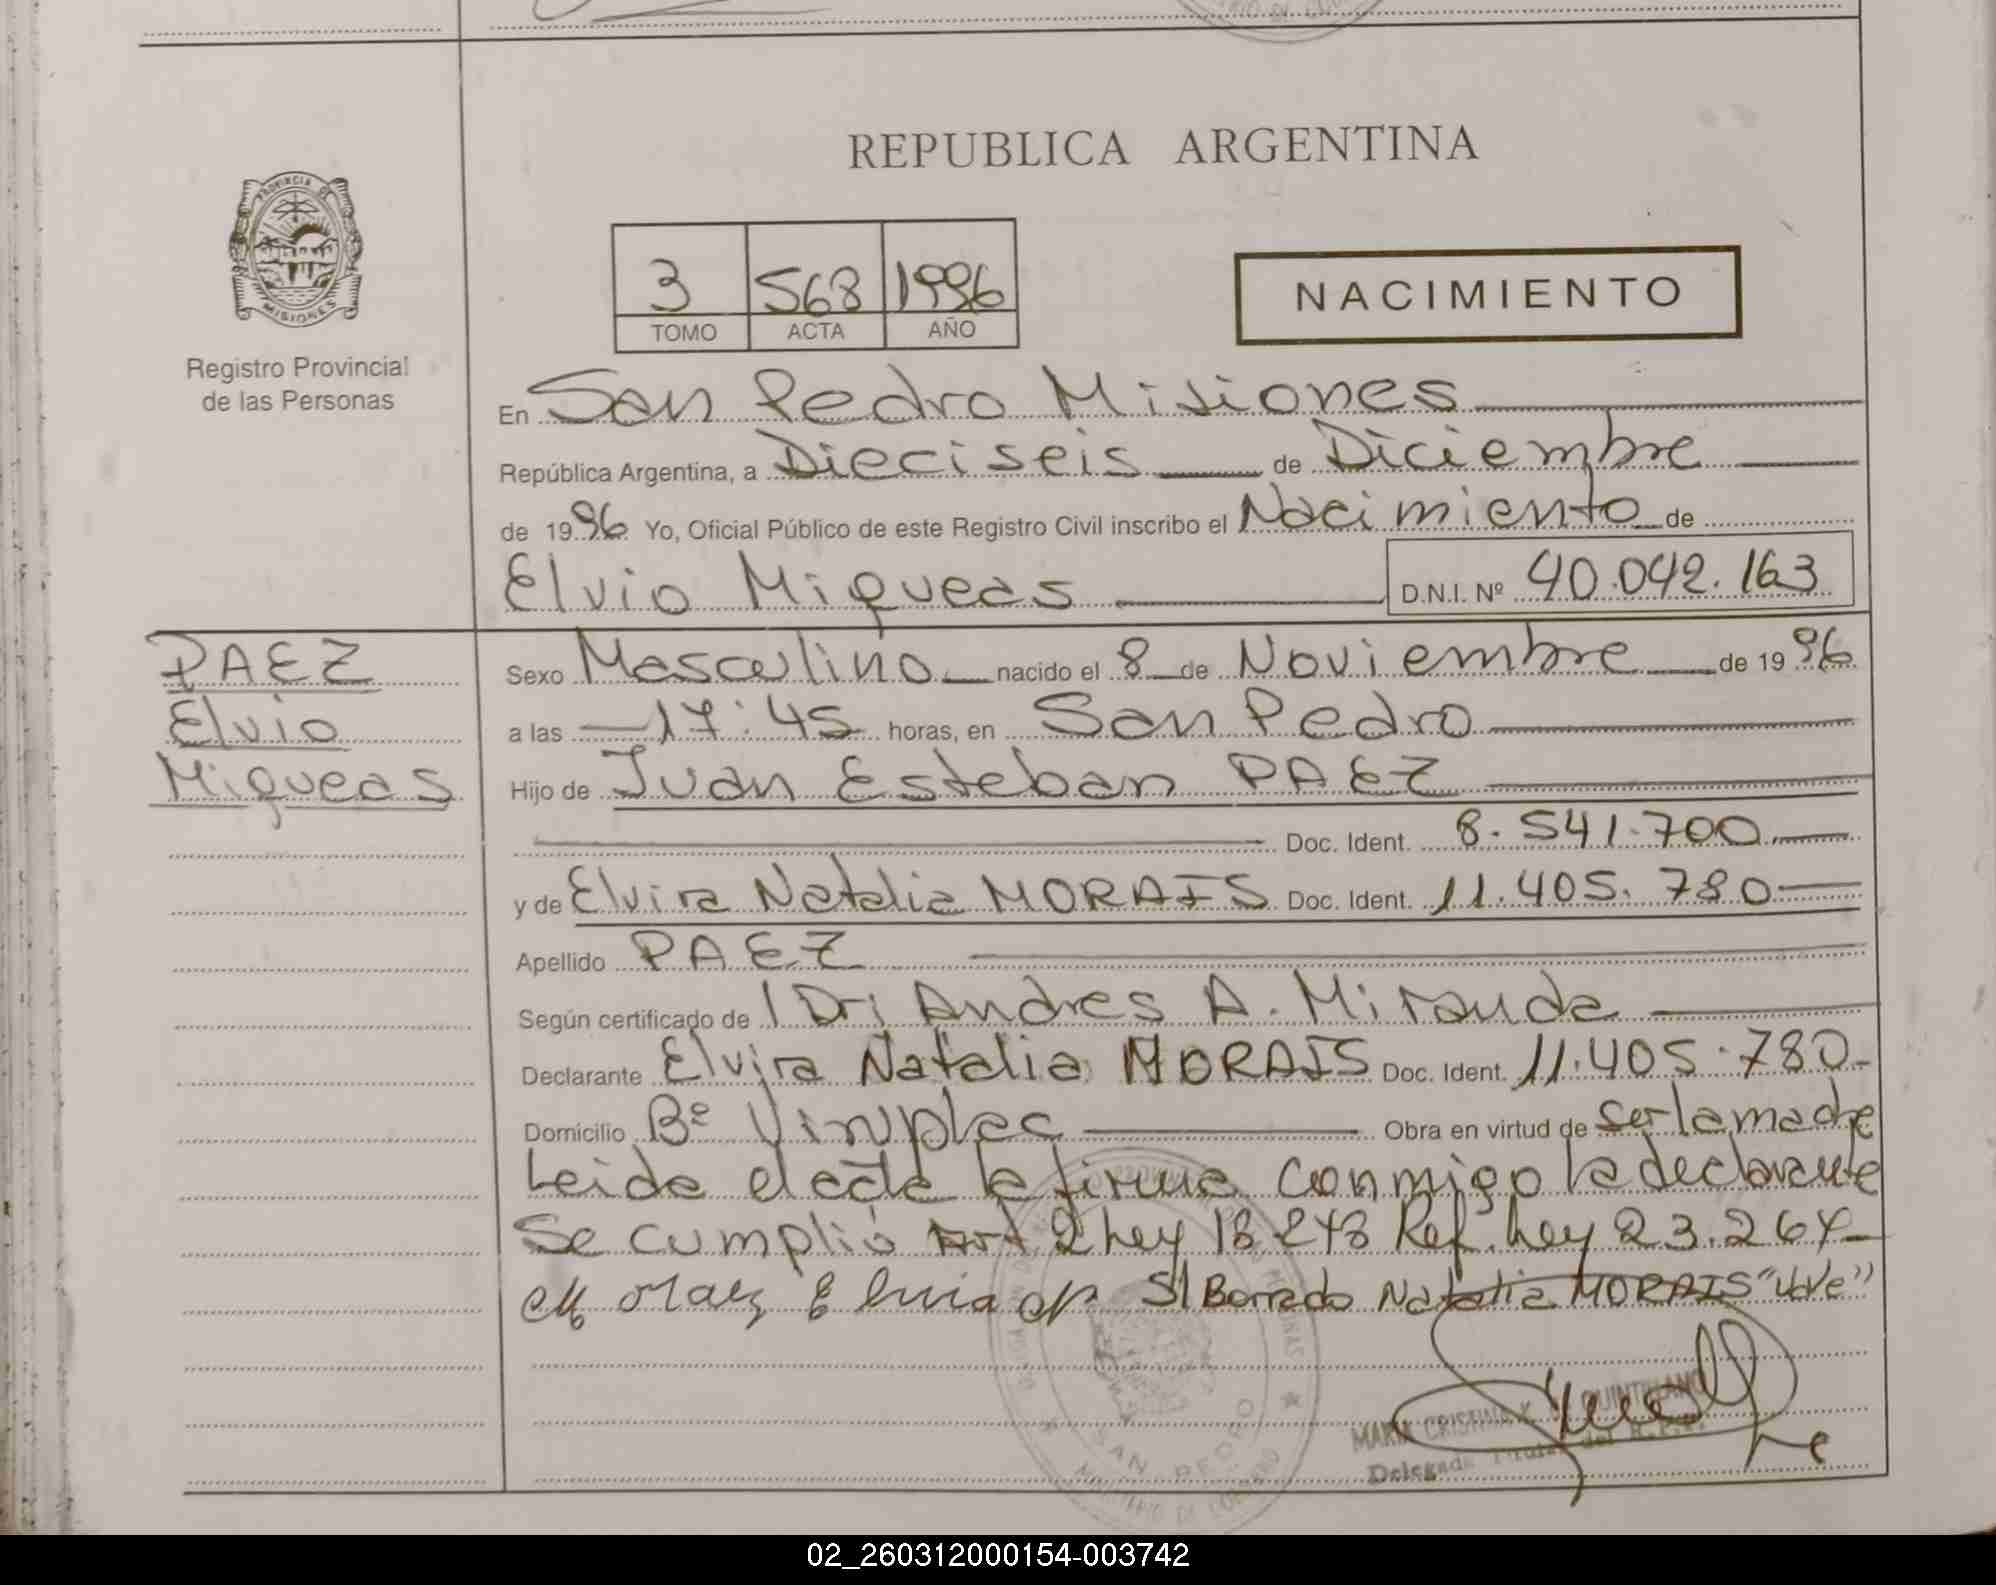 REPUBLICA ARGENTINA
PROVINCIA DE
MISIONES
Registro Provincial
de las Personas
3 568 1996
TOMO ACTA AÑO
NACIMIENTO
En San Pedro Misiones
República Argentina, a Dieciseis de Diciembre
de 1996 Yo, Oficial Público de este Registro Civil inscribo el Nacimiento de
Elvio Miqueas D.N.I. Nº 40.042.163
PAEZ
Elvio
Miqueas
Sexo Masculino nacido el 8 de Noviembre de 1996
a las 17:45 horas, en San Pedro
Hijo de Juan Esteban PAEZ
Doc. Ident. 8.541.700
y de Elvira Natalia MORAIS Doc. Ident. 11.405.780
Apellido PAEZ
Según certificado de Dr: Andres A. Miranda
Declarante Elvira Natalia MORAIS Doc. Ident. 11.405.780-
Domicilio Bº Obra en virtud de ser la madre
Leida el acta la firma conmigo la declarante
Se cumplió Art 2 Ley 18.248 Ref. Ley 23.264-
S/ Borrado Natalia MORAIS "Vale"
SAN PEDRO
MINISTERIO DE GOBIERNO
MARIA CRISTINA K. QUINTILLANO
Delegada Titular del R.P.P.
02_260312000154-003742